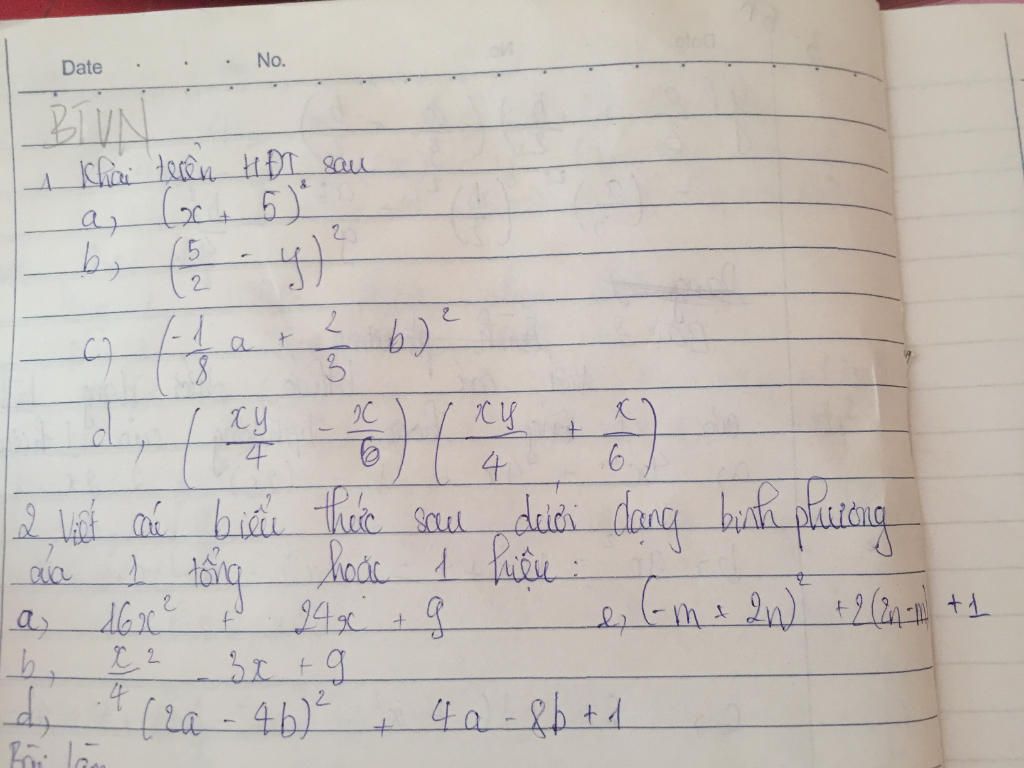 Date . . . No.
BTVN
1 Khai triển HĐT sau
a, (x + 5)²
b, (5/2 - y)²
c) (-1/8 a + 2/3 b)²
d, (xy/4 - x/6) (xy/4 + x/6)
2 Viết các biểu thức sau dưới dạng bình phương
của 1 tổng hoặc 1 hiệu :
a, 16x² + 24x + 9 e, (-m + 2n)² + 2(2n-m) + 1
b, x²/4 - 3x + 9
d, (2a - 4b)² + 4a - 8b + 1
Bài làm